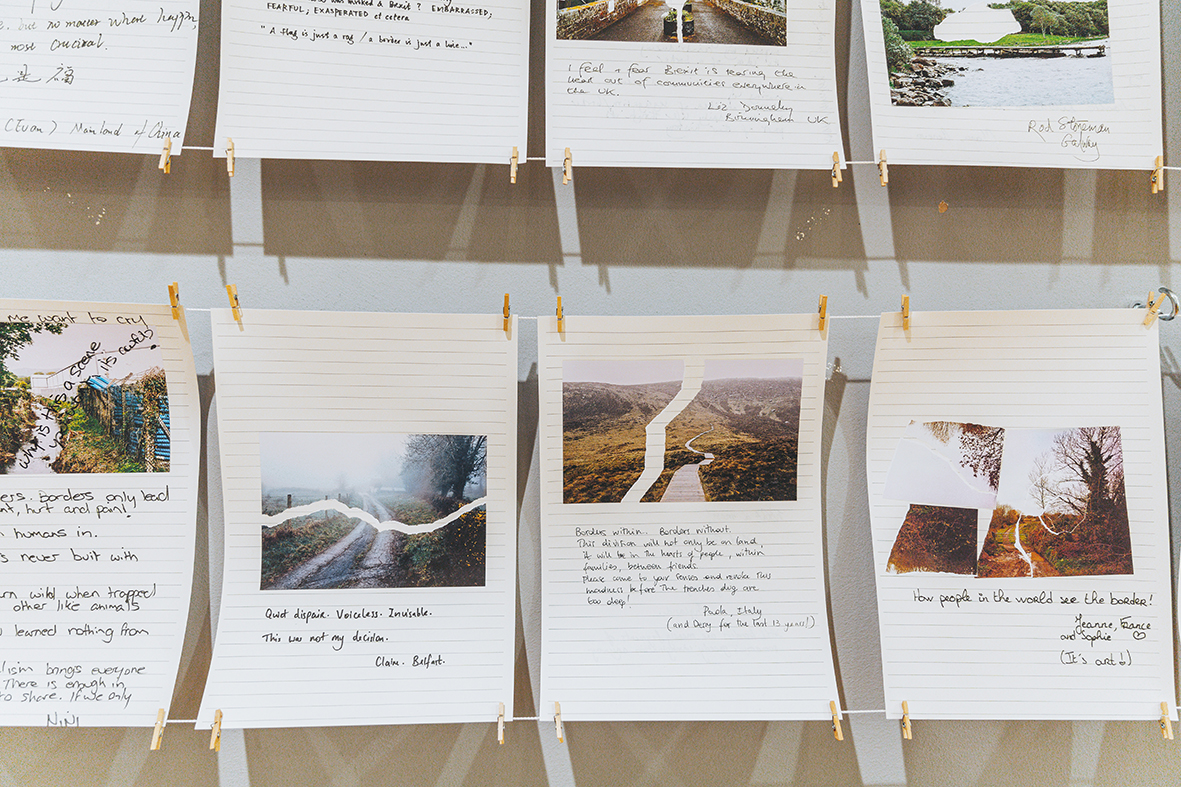 e. but no matter where happen,
most crucial.
是 福
(Evan) Mainland of China
EMBARRASSED;
FEARFUL; EXASPERATED et cetera
"A flag is just a rag / a border is just a line..."
I feel + fear Brexit is tearing the
heart out of communities everywhere in
the UK.
Liz Donnelly
Birmingham UK
Rod Stoneman
Galway
Me want to cry
what is a scene
it is awful?
ers. Borders only lead
nt, hurt and pain!
humans in.
s never buit with
urn wild when trapped
other like animals
u learned nothing from
lism brings everyone
There is enough in
to share. If we only
NiNi
Quiet dispair. Voiceless. Invisable.
This was not my decision.
Claire. Belfast.
Borders within. Borders without.
This division will not only be on land,
it will be in the hearts of people, within
families, between friends.
Please come to your senses and revoke this
madness before the trenches dug are
too deep!
Paola, Italy
(and Derry for the last 13 years!)
How people in the world see the border!
Jeanne, France
and Sophie
(It's art!)